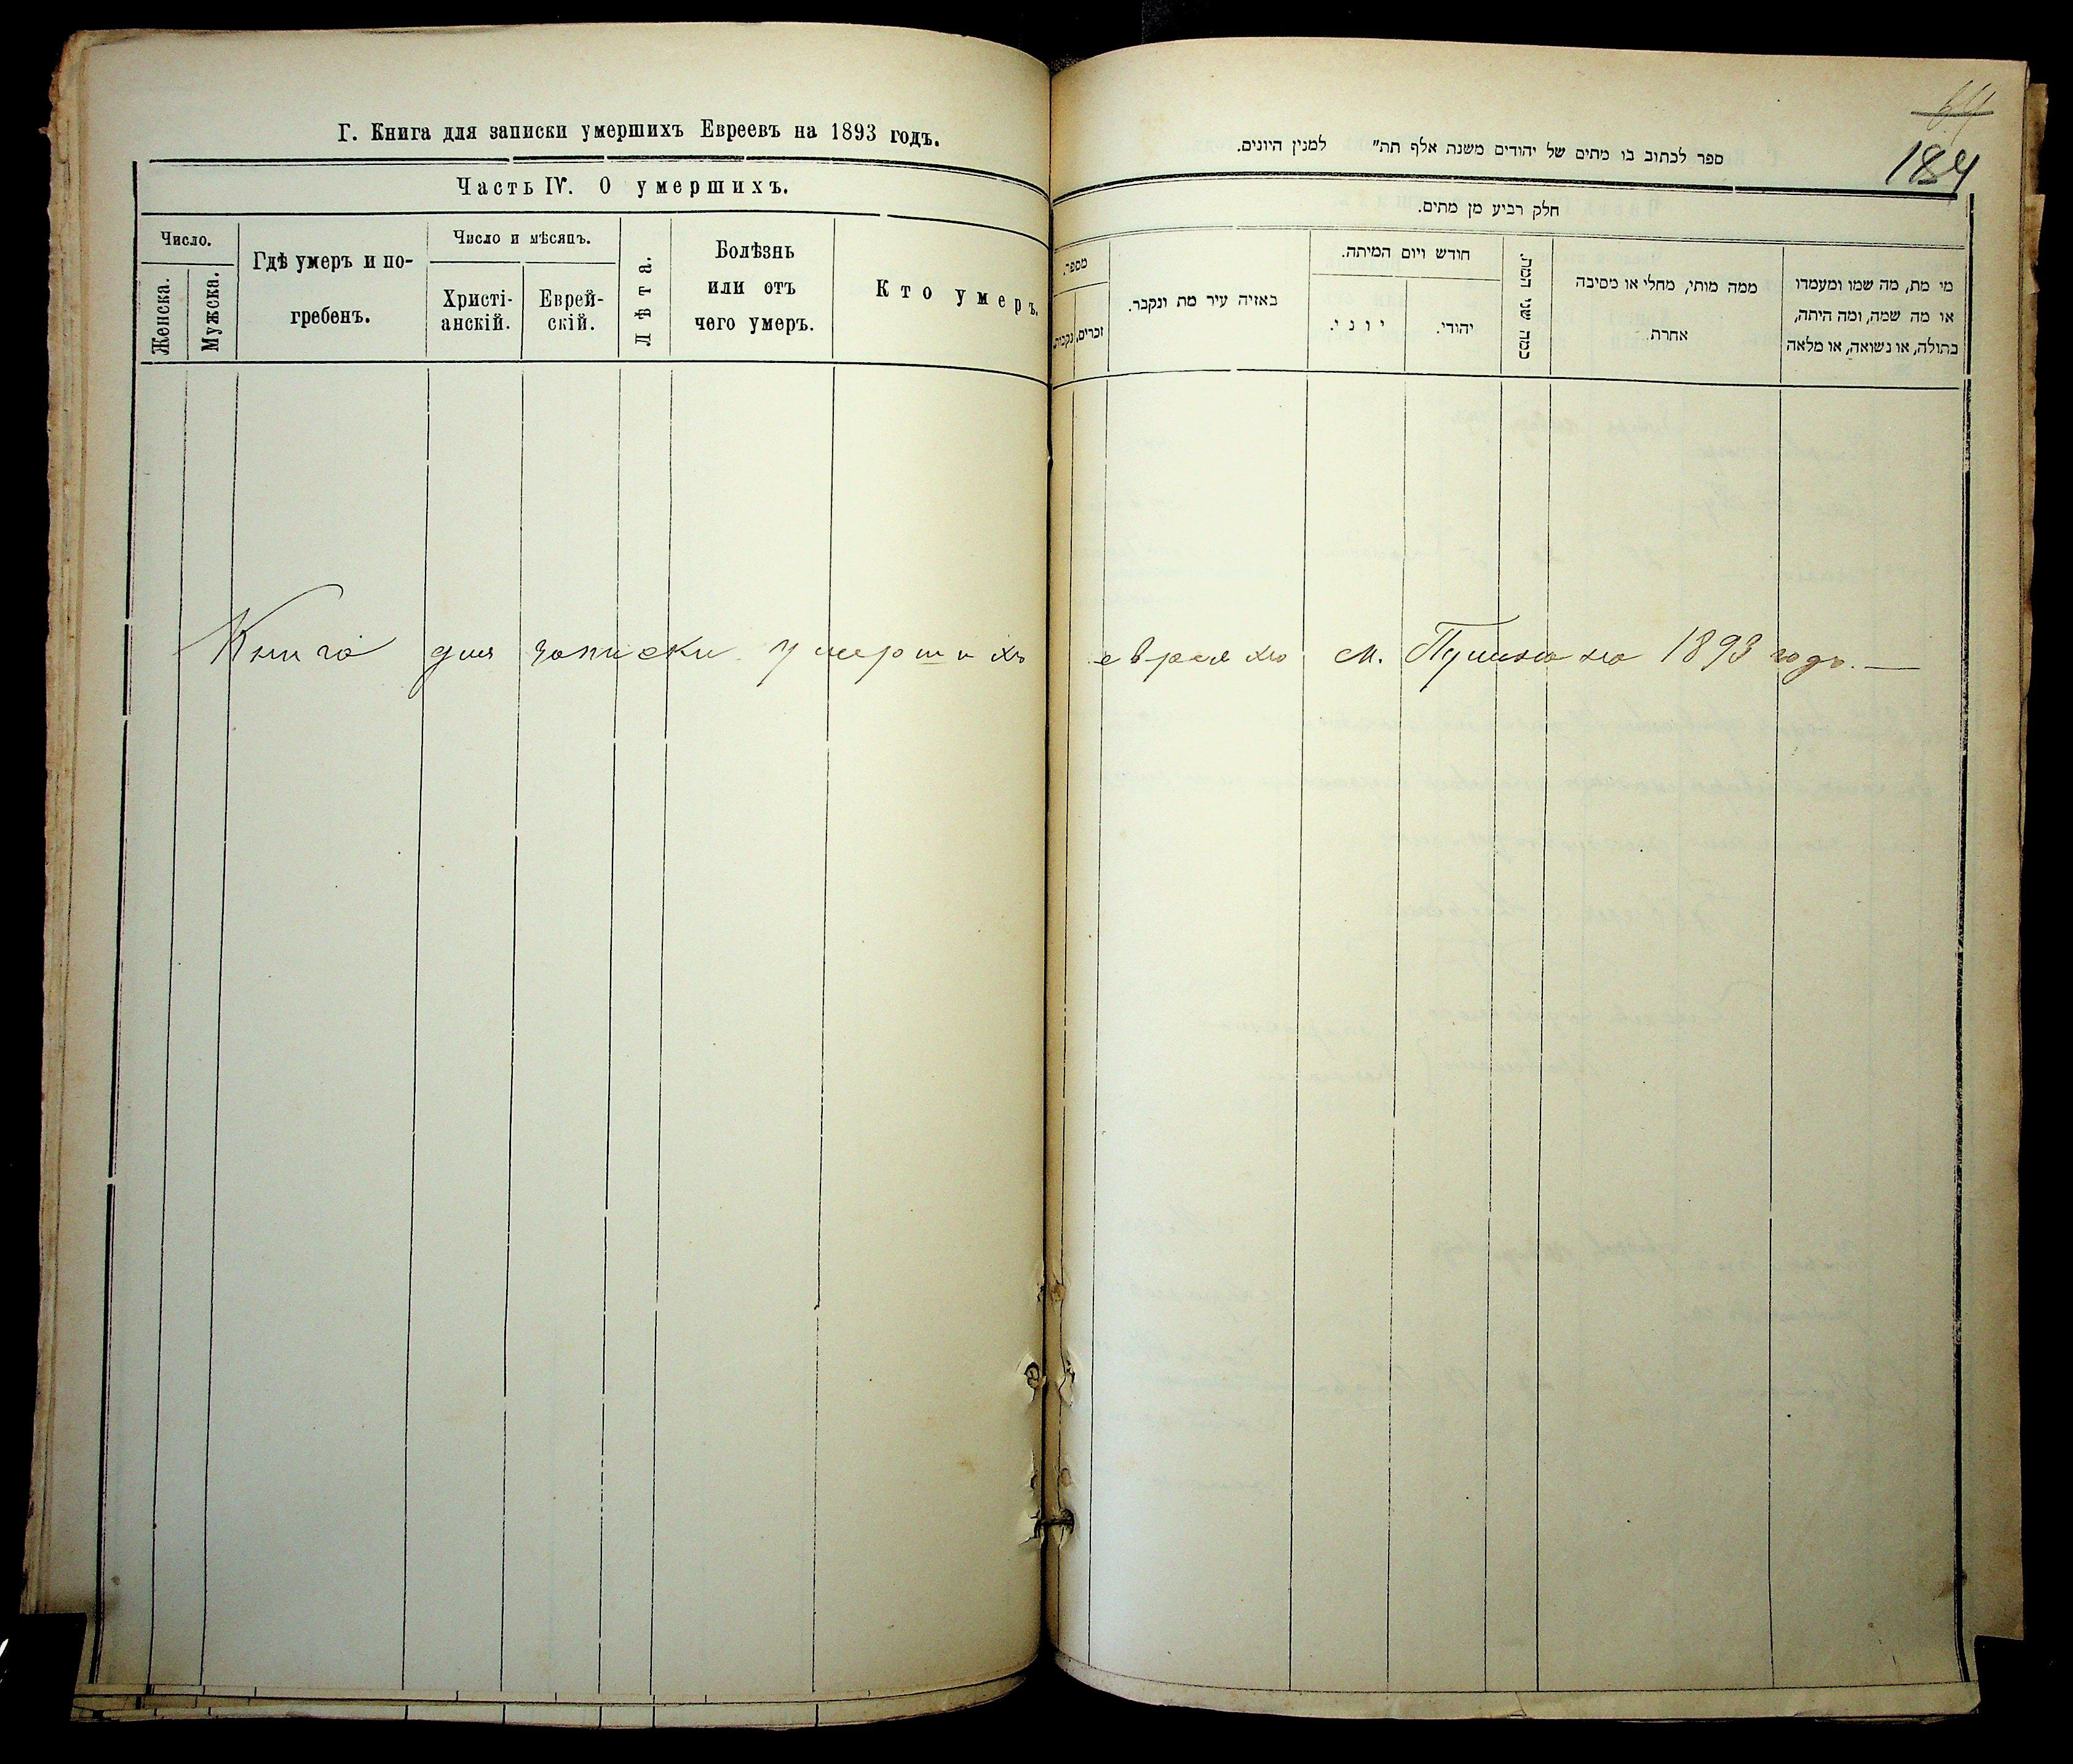 Г. Книга для записки умершихъ Евреевъ на 1893 годъ.
Часть IV. О умершихъ.
Число.
Женска.
Мужска.
Гдѣ умеръ и по-
гребенъ.
Число и мѣсяцъ.
Христі-
анскій.
Еврей-
скій.
Лѣта.
Болѣзнь
или отъ
чего умеръ.
Кто умеръ.
64
184
ספר לכתוב בו מתים של יהודים משנת אלף תת״ למנין היונים.
חלק רביע מן מתים.
מספר.
זכרים.
נקבות.
באזיה עיר מת ונקבר.
חודש ויום המיתה.
יוני.
יהודי.
כמה שני המת.
ממה מותי, מחלי או מסיבה
אחרת.
מי מת, מה שמו ומעמדו
או מה שמה, ומה היתה,
בתולה, או נשואה, או מלאה
Книга для записки умершихъ евреевъ м. на 1893 годъ. —